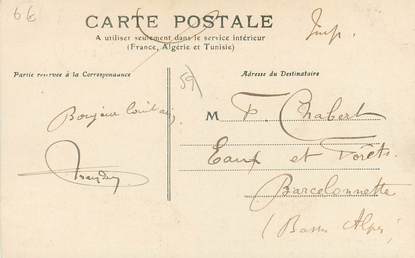 66
CARTE POSTALE
A utiliser seulement dans le service intérieur
(France, Algérie et Tunisie)
Imp.
Partie réservée à la Correspondance
Adresse du Destinataire
59
Bonjour
M F. Chabert
Eaux et Forêts
Barcelonnette
(Basses Alpes)